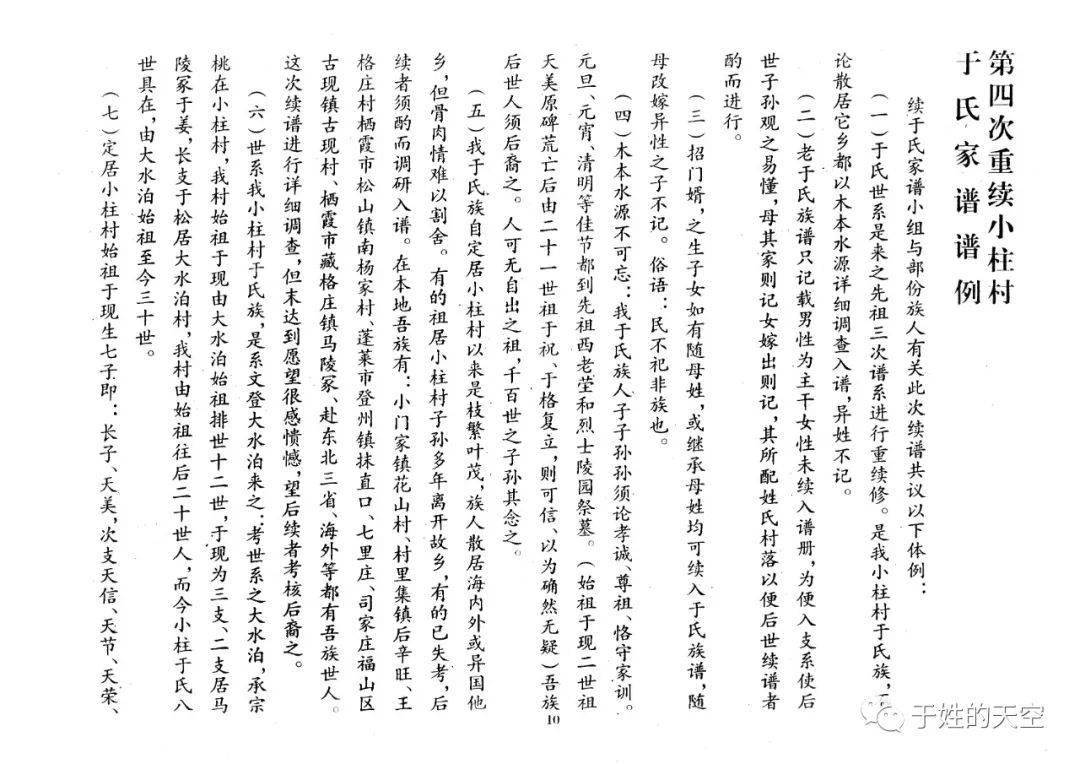 第四次重续小柱村
于氏家谱谱例
续于氏家谱小组与部份族人有关此次续谱共议以下体例：
（一）于氏世系是来之先祖三次谱系进行重续修。是我小柱村于氏族，
论散居它乡都以木本水源详细调查入谱，异姓不记。
（二）老于氏族谱只记载男性为主干女性未续入谱册，为便入支系使后
世子孙观之易懂，母其家则记女嫁出则记，其所配姓氏村落以便后世续谱者
酌而进行。
（三）招门婿，之生子女如有随母姓，或继承母姓均可续入于氏族谱，随
母改嫁异性之子不记。俗语：民不祀非族也。
（四）木本水源不可忘：我于氏族人子子孙孙须论孝诚、尊祖、恪守家训。
元旦、元宵、清明等佳节都到先祖西老茔和烈士陵园祭墓。（始祖于现二世祖
天美原碑荒亡后由二十一世祖于祝、于格复立，则可信、以为确然无疑）吾族
后世人须后裔之。人可无自出之祖，千百世之子孙其念之。
（五）我于氏族自定居小柱村以来是枝繁叶茂，族人散居海内外或异国他
乡，但骨肉情难以割舍。有的祖居小柱村子孙多年离开故乡，有的已失考，后
续者须酌而调研入谱。在本地吾族有：小门家镇花山村、村里集镇后辛旺、王
格庄村栖霞市松山镇南杨家村、蓬莱市登州镇抹直口、七里庄、司家庄福山区
古现镇古现村、栖霞市藏格庄镇马陵冢、赴东北三省、海外等都有吾族世人。
这次续谱进行详细调查，但末达到愿望很感愤憾，望后续者考核后裔之。
（六）世系我小柱村于氏族，是系文登大水泊来之：考世系之大水泊，承宗
桃在小柱村，我村始祖于现由大水泊始祖排世十二世，于现为三支、二支居马
陵冢于姜，长支于松居大水泊村，我村由始祖往后二十世人，而今小柱于氏八
世具在，由大水泊始祖至今三十世。
（七）定居小柱村始祖于现生七子即：长子、天美，次支天信、天节、天荣、
10
于姓的天空